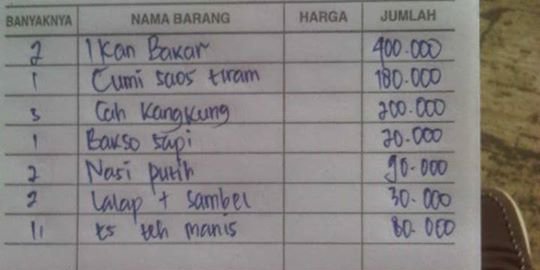 BANYAKNYA NAMA BARANG HARGA JUMLAH
2 Ikan Bakar 400.000
1 Cumi saos tiram 180.000
3 Cah Kangkung 200.000
1 Bakso sapi 20.000
2 Nasi putih 90.000
2 Lalap + sambel 30.000
11 es teh manis 80.000